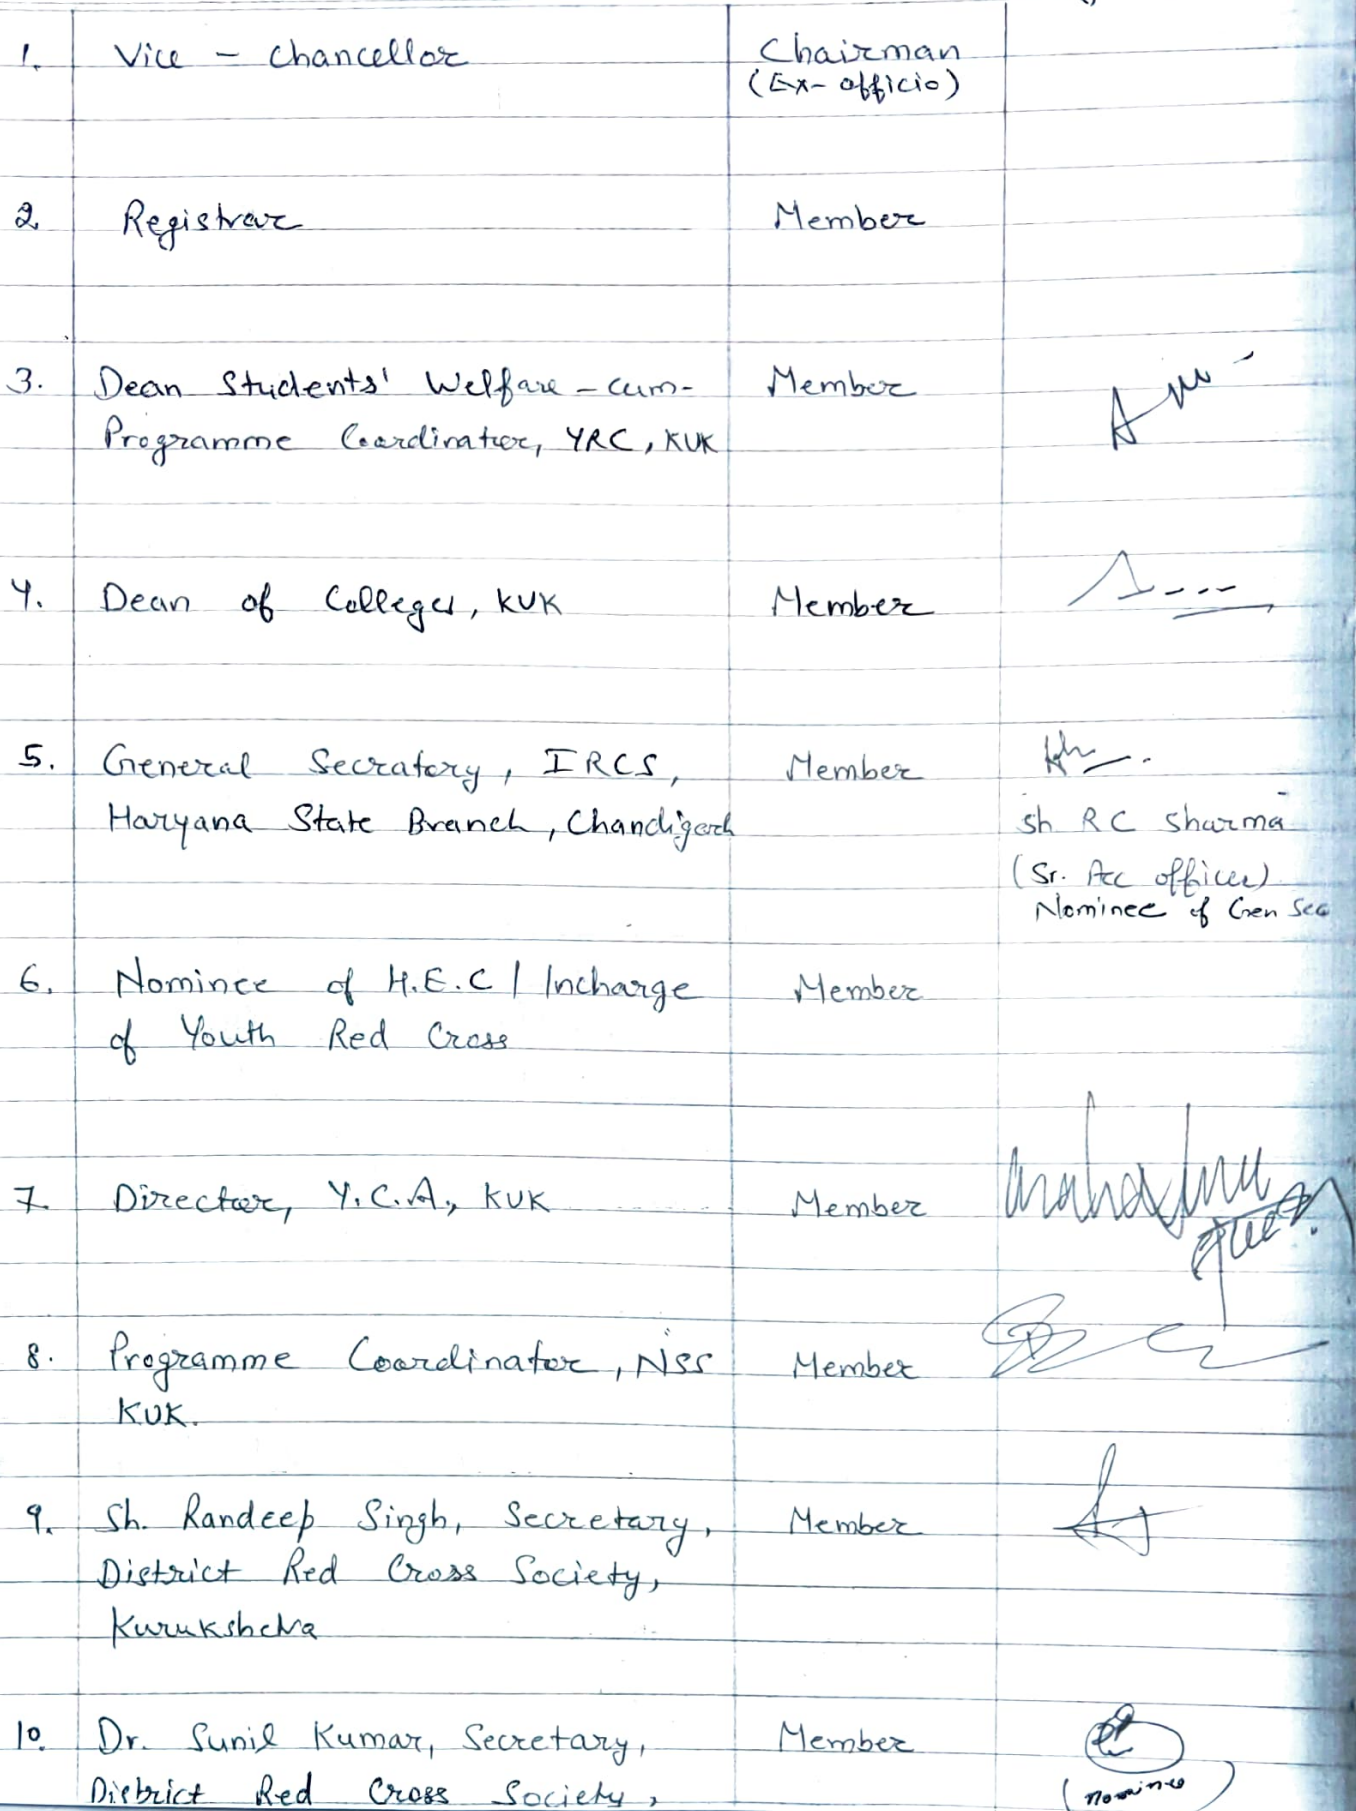 1. Vice - Chancellor Chairman
(Ex- officio)
2. Registrar Member
3. Dean Students' Welfare - cum- Member
Programme Coordinator, YRC, KUK
4. Dean of Colleges, KUK Member
5. General Secratory, IRCS, Member
Haryana State Branch, Chandigarh sh RC Sharma
(Sr. Acc officer)
Nominee of Gen Sec
6. Nominee of H.E.C / Incharge Member
of Youth Red Cross
7. Director, Y.C.A., KUK Member
8. Programme Coordinator, NSS Member
KUK.
9. Sh. Randeep Singh, Secretary, Member
District Red Cross Society,
Kurukshetra
10. Dr. Sunil Kumar, Secretary, Member
District Red Cross Society, (nominee